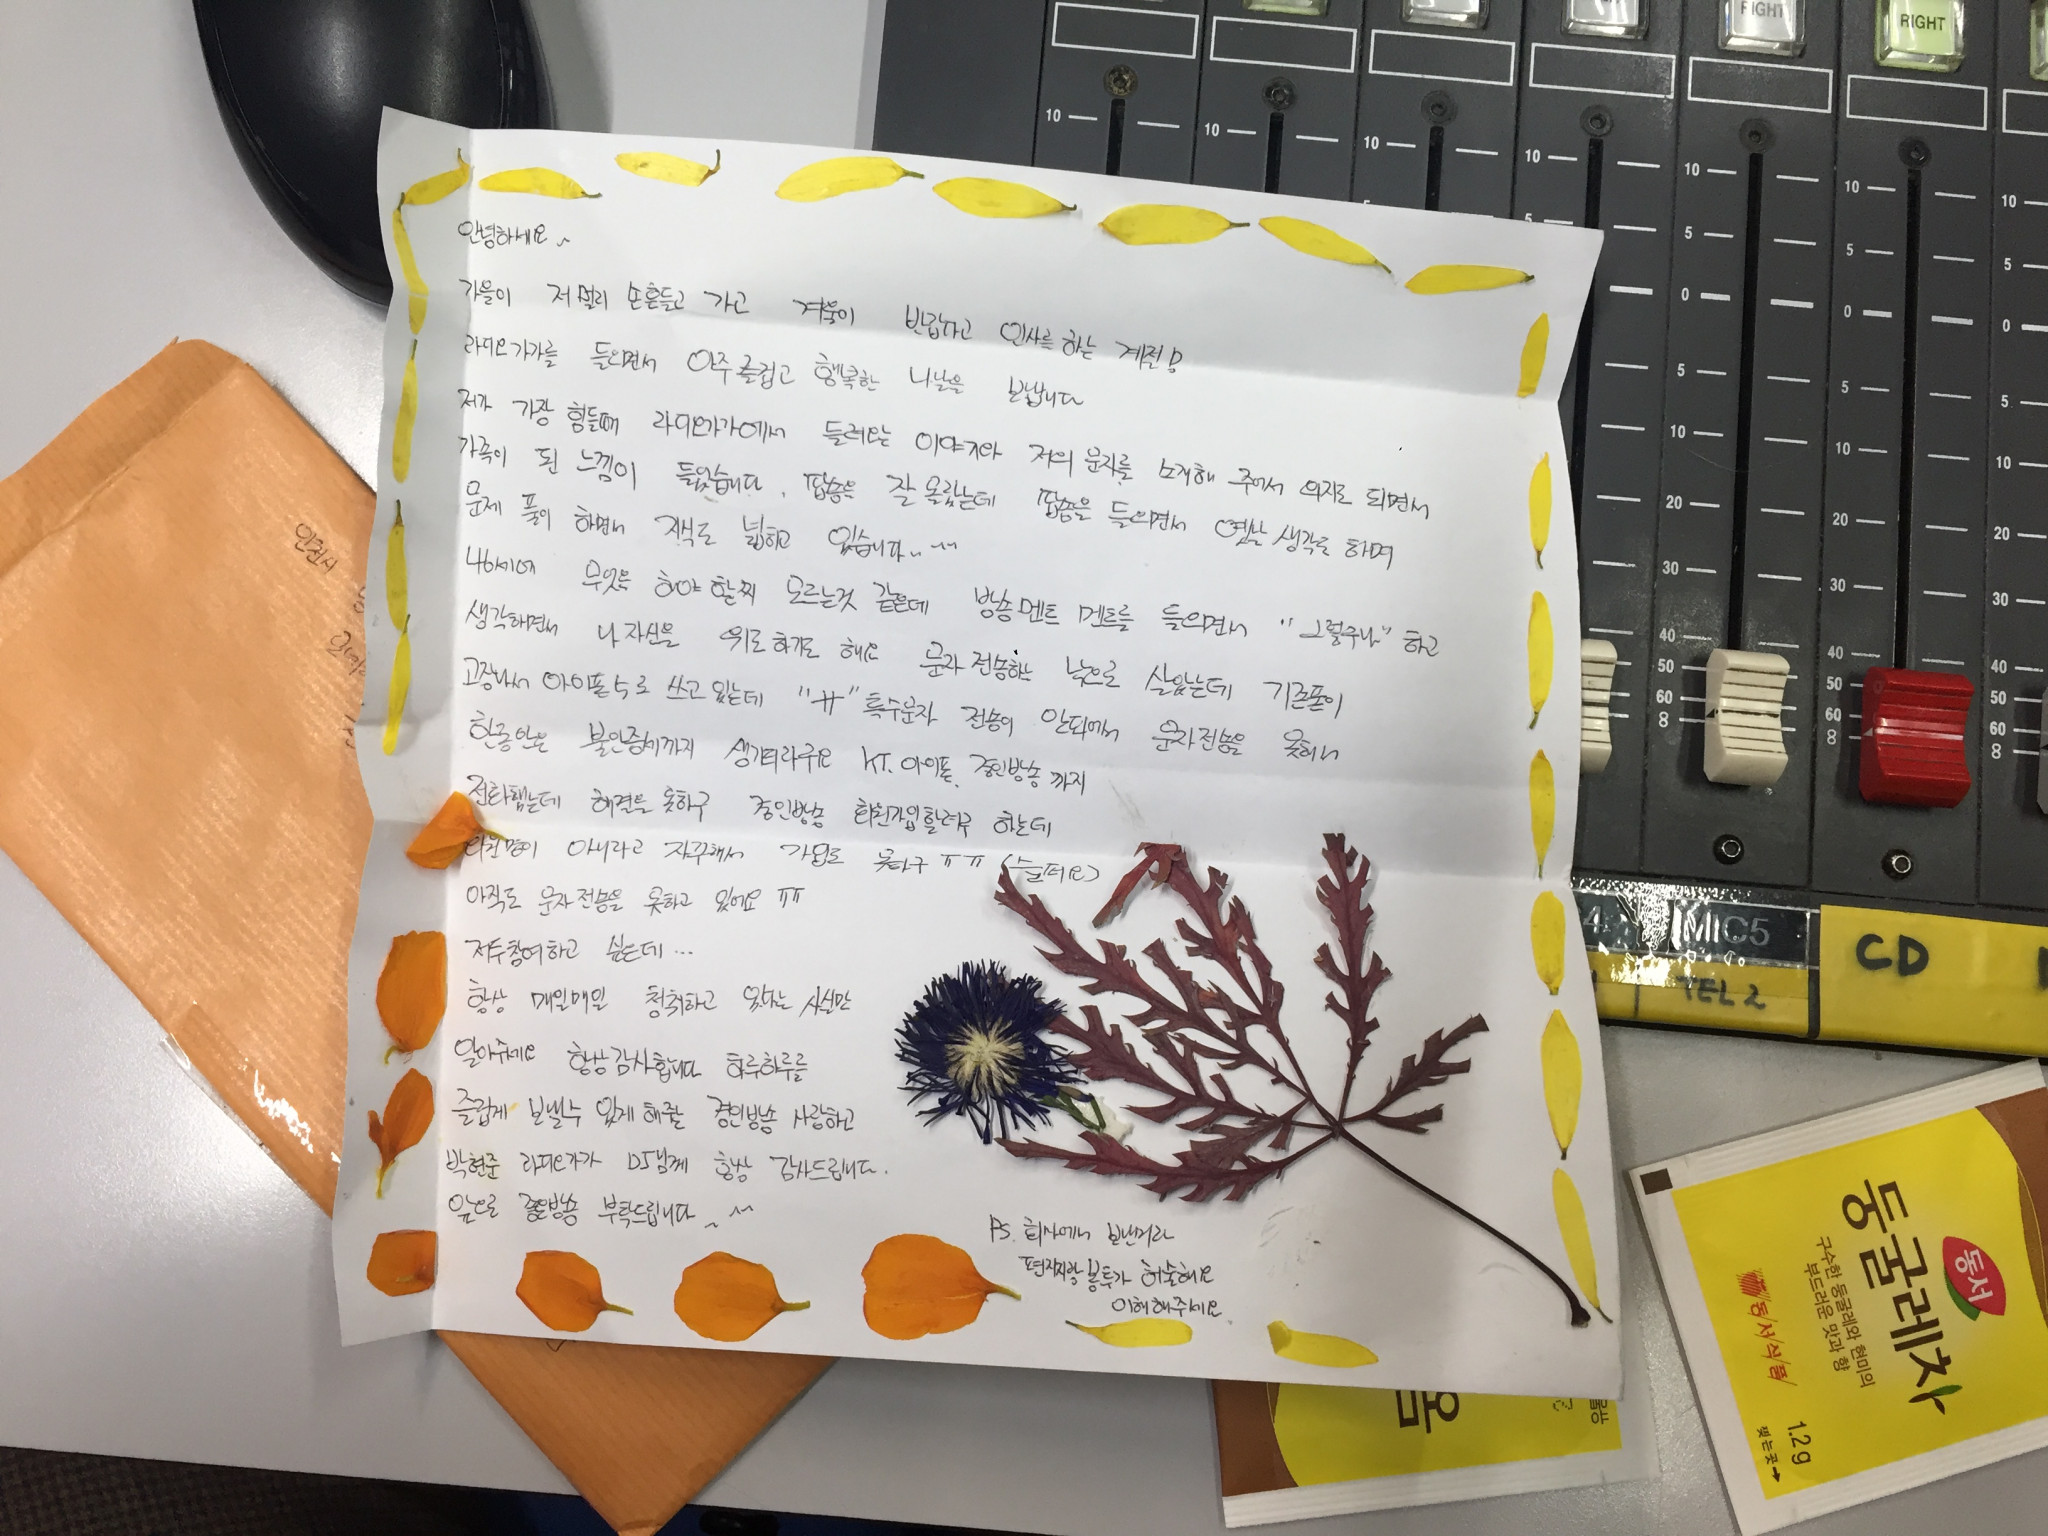 안녕하세요~
가을이 저멀리 손흔들고 가고 겨울이 반갑다고 인사를 하는 계절!
라디오가가를 들으면서 아주 즐겁고 행복한 나날을 보냅니다
제가 가장 힘들때 라디오가가에서 들려오는 이야기와 저의 문자를 소개해 주어서 의지도 되면서
가족이 된 느낌이 들었습니다. 팝송은 잘 몰랐는데 팝송을 들으면서 옛날 생각도 하며
문제 풀이 하면서 지식도 넓히고 있습니다..~~
46세에 무엇을 하야 할찌 모르는것 같은데 방송멘트 멘트를 들으면서 "그렇구나" 하고
생각하면서 나 자신을 위로하기도 해요 문자 전송하는 낙으로 살았는데 기존폰이
고장나서 아이폰5로 쓰고 있는데 "#" 특수문자 전송이 안되어서 문자전송을 못해서
한동안은 불안증세까지 생기더라구요 KT, 아이폰, 경인방송 까지
전화했는데 해결을 못하구 경인방송 회원가입할려구 하는데
아니라고 자꾸해서 가입도 못하구 ㅠㅠ (슬퍼요)
아직도 문자전송을 못하고 있어요 ㅠㅠ
저두참여하고 싶은데...
항상 매일매일 청취하고 있다는 사실만
알아주세요 항상감사합니다 하루하루를
즐겁게 보낼수 있게 해준 경인방송 사랑하고
박현준 라디오가가 DJ님께 항상 감사드립니다.
앞으로 좋은방송 부탁드립니다~ ~~
PS. 회사에서 보낸거라
편지지랑 봉투가 허술해요
이해해주세요.
인천시
RIGHT
RIGHT
10
10
10
10
10
10
5
5
5
5
0
0
0
5
5
5
10
10
10
20
20
20
30
30
30
40
40
40
50
50
50
60
60
60
∞
∞
∞
MIC5
TEL 2
CD
동서
둥굴레차
구수한 둥굴레와 현미의
부드러운 맛과 향
동서식품
1.2g
찢는곳→